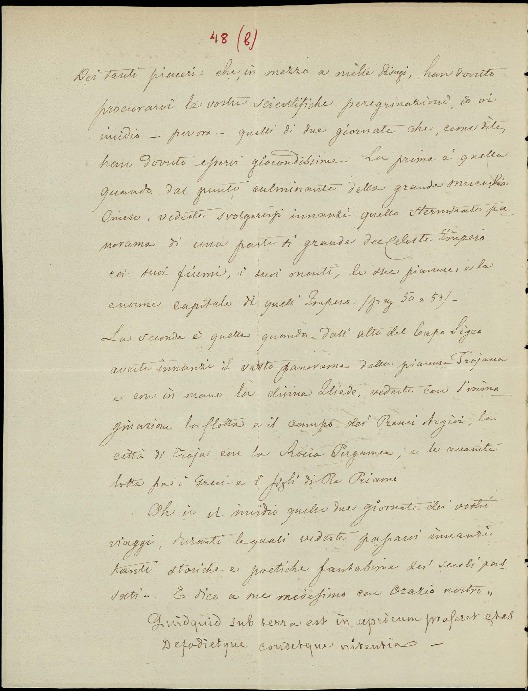 48 (8)
Dei tanti piaceri che, in mezzo a mille disagi, han dovuto
procurarvi le vostre scientifiche peregrinazioni, io vi
invidio — per ora — quelli di due giornate che, come dite,
han dovuto esservi giocondissime. La prima è quella
quando dal punto culminante della grande muraglia
Cinese, vedeste svolgersi innanzi quello sterminato pa-
norama di una parte sì grande del Celeste Impero
coi suoi fiumi, i suoi monti, le sue pianure, e la
enorme capitale di quell'Impero (pag 50 a 52)—
La seconda è quella quando dall'alto del Capo Sigeo
aveste innanzi il vasto panorama della pianura Trojana
e con in mano la divina Iliade, vedeste con l'imma
ginazione la flotta e il campo dei Prenci Argivi; la
città di Troja con la Rocca Pergamea, e le accanite
lotte fra i Greci e i figli di Re Priamo
Oh io vi invidio quelle due giornate dei vostri
viaggi, durante le quali vedeste passarvi innanzi
tante storiche e poetiche fantasime dei secoli pas
sati. E dico a me medesimo con Orazio nostro „
Quidquid sub terra est in apricum proferet aetas
Defodietque condetque nitentia —